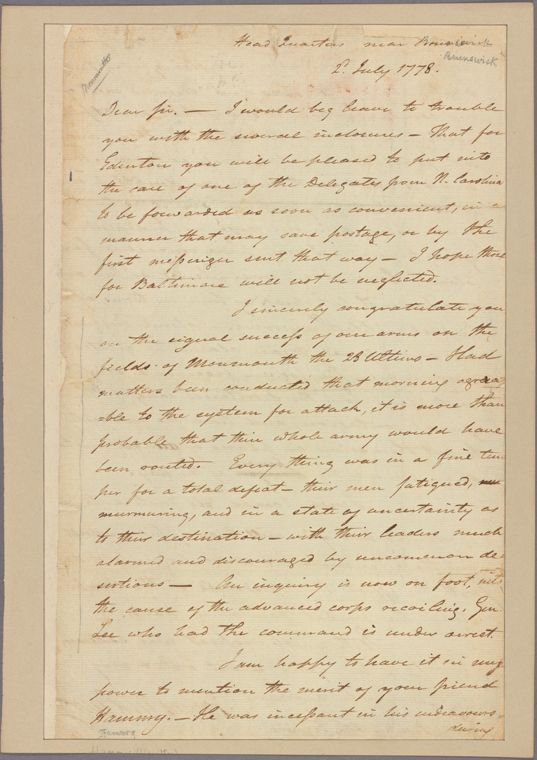 Head Quarters near Brunswick
Brunswick
2d. July 1778.
Dear Sir. — I would beg leave to trouble
you with the several inclosures — That for
Edenton you will be pleased to put into
the care of one of the Delegates from N. Carolina
to be forwarded as soon as convenient, in a
manner that may save postage, or by the
first messenger sent that way — I hope those
for Baltimore will not be neglected.
I sincerely congratulate you
on the signal success of our arms on the
fields of Monmouth the 28 Ultimo — Had
matters been conducted that morning agreea-
able to the system for attack, it is more than
probable that their whole army would have
been routed. Every thing was in a fine tem
per for a total defeat — their men fatigued,
murmuring, and in a state of uncertainty as
to their destination — with their leaders much
alarmed and discouraged by uncommon de
sertions — An inquiry is now on foot, into
the cause of the advanced corps recoiling. Gen
Lee who had the command is under arrest.
I am happy to have it in my
power to mention the merit of your friend
Hammy. — He was incessant in his endeavours
during